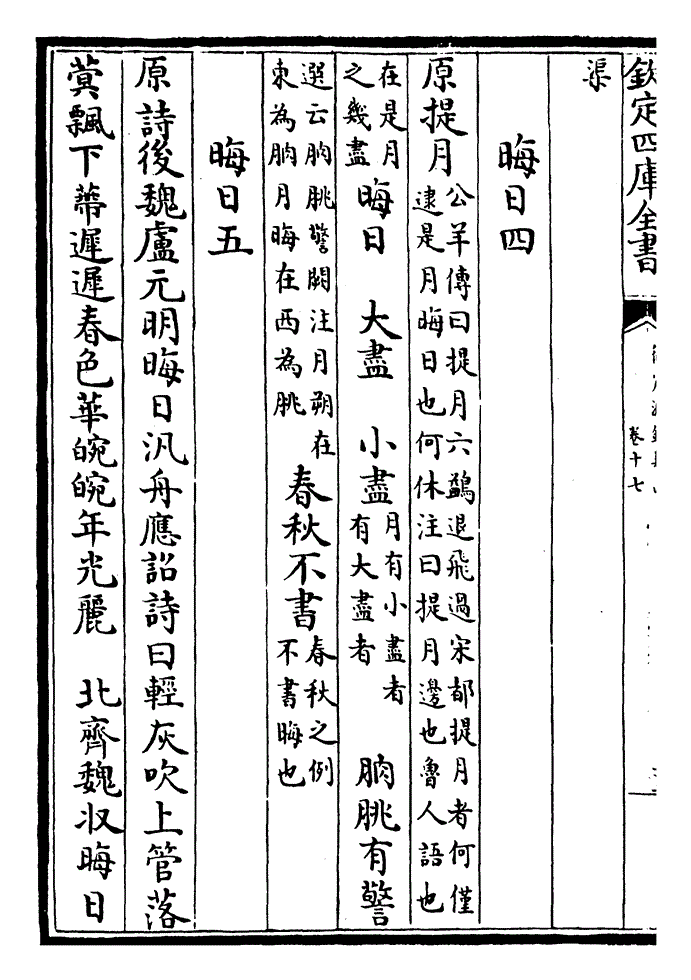 欽定四庫全書
卷十七
渠
晦日四
原提月公羊傳曰提月六鷁退飛過宋都提月者何僅逮是月晦日也何休注曰提月邊也魯人語也
在是月之幾盡 晦日 大盡 小盡月有小盡者有大盡者 朒朓有警
選云朒朓警闕注月朔在東為朒月晦在西為朓 春秋不書春秋之例不書晦也
晦日五
原詩後魏盧元明晦日汎舟應詔詩曰輕灰吹上管落
蓂飄下蔕遲遲春色華晼晼年光麗 北齊魏收晦日